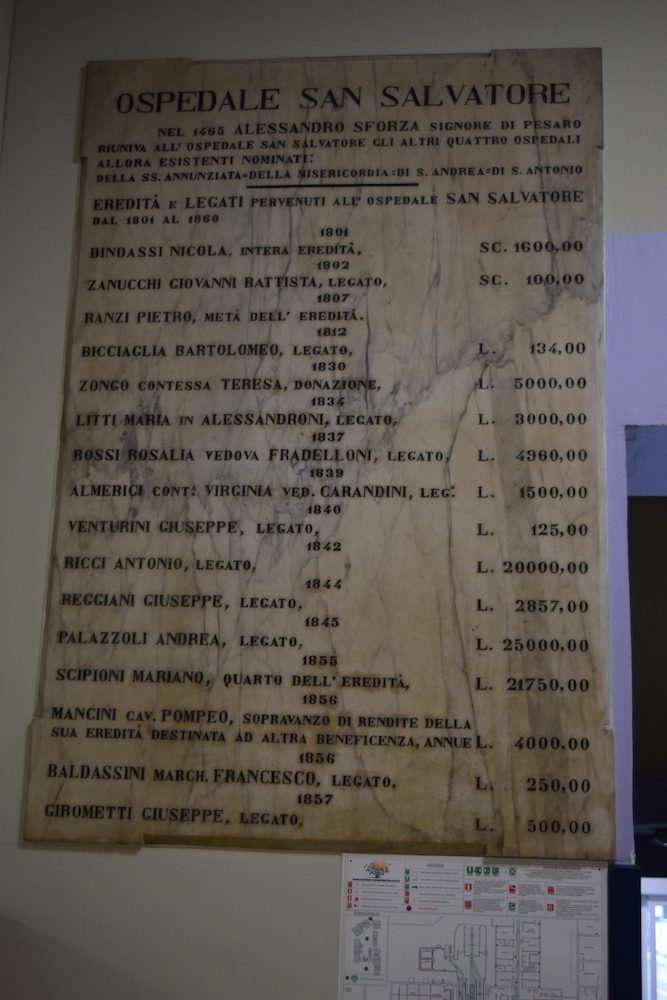 OSPEDALE SAN SALVATORE
NEL 1465 ALESSANDRO SFORZA SIGNORE DI PESARO
RIUNIVA ALL' OSPEDALE SAN SALVATORE GLI ALTRI QUATTRO OSPEDALI
ALLORA ESISTENTI NOMINATI:
DELLA SS. ANNUNZIATA=DELLA MISERICORDIA=DI S. ANDREA=DI S. ANTONIO
EREDITÀ E LEGATI PERVENUTI ALL' OSPEDALE SAN SALVATORE
DAL 1801 AL 1860
1801
BINDASSI NICOLA, INTERA EREDITÀ, SC. 1600,00
1802
ZANUCCHI GIOVANNI BATTISTA, LEGATO, SC. 100,00
1807
RANZI PIETRO, METÀ DELL' EREDITÀ.
1812
BICCIAGLIA BARTOLOMEO, LEGATO, L. 134,00
1830
ZONGO CONTESSA TERESA, DONAZIONE, L. 5000,00
1834
LITTI MARIA IN ALESSANDRONI, LEGATO, L. 3000,00
1837
ROSSI ROSALIA VEDOVA FRADELLONI, LEGATO, L. 4960,00
1839
ALMERICI CONT: VIRGINIA VED. CARANDINI, LEG: L. 1500,00
1840
VENTURINI GIUSEPPE, LEGATO, L. 125,00
1842
RICCI ANTONIO, LEGATO, L. 20000,00
1844
REGGIANI GIUSEPPE, LEGATO, L. 2857,00
1845
PALAZZOLI ANDREA, LEGATO, L. 25000,00
1855
SCIPIONI MARIANO, QUARTO DELL'EREDITÀ, L. 21750,00
1856
MANCINI CAV. POMPEO, SOPRAVANZO DI RENDITE DELLA
SUA EREDITÀ DESTINATA AD ALTRA BENEFICENZA, ANNUE L. 4000,00
1856
BALDASSINI MARCH. FRANCESCO, LEGATO, L. 250,00
1857
GIROMETTI GIUSEPPE, LEGATO, L. 500,00